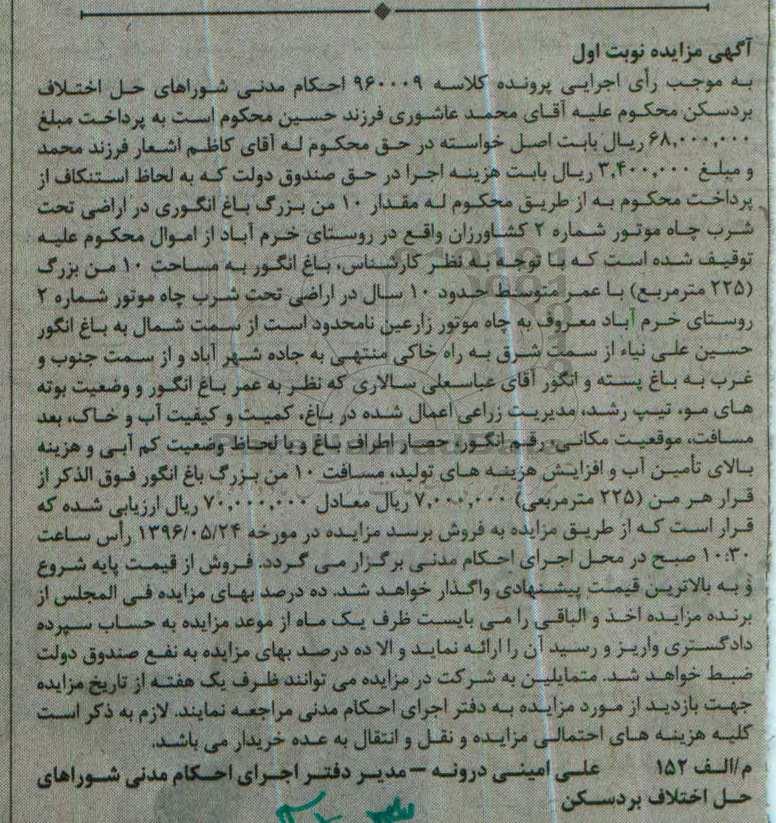 آگهی مزایده نوبت اول
به موجب رأی اجرایی پرونده کلاسه ۹۶۰۰۰۹ احکام مدنی شوراهای حل اختلاف
بردسکن محکوم علیه آقای محمد عاشوری فرزند حسین محکوم است به پرداخت مبلغ
۶۸,۰۰۰,۰۰۰ ریال بابت اصل خواسته در حق محکوم له آقای کاظم اشعار فرزند محمد
و مبلغ ۳,۴۰۰,۰۰۰ ریال بابت هزینه اجرا در حق صندوق دولت که به لحاظ استنکاف از
پرداخت محکوم به از طریق محکوم له مقدار ۱۰ من بزرگ باغ انگوری در اراضی تحت
شرب چاه موتور شماره ۲ کشاورزان واقع در روستای خرم آباد از اموال محکوم علیه
توقیف شده است که با توجه به نظر کارشناس، باغ انگور به مساحت ۱۰ من بزرگ
(۲۲۵ مترمربع) با عمر متوسط حدود ۱۰ سال در اراضی تحت شرب چاه موتور شماره ۲
روستای خرم آباد معروف به چاه موتور زارعین نامحدود است از سمت شمال به باغ انگور
حسین علی نیاء از سمت شرق به راه خاکی منتهی به جاده شهر آباد و از سمت جنوب و
غرب به باغ پسته و انگور آقای عباسعلی سالاری که نظر به عمر باغ انگور و وضعیت بوته
های مو، تیپ رشد، مدیریت زراعی اعمال شده در باغ، کمیت و کیفیت آب و خاک، بعد
مسافت، موقعیت مکانی، رقم انگور، حصار اطراف باغ و با لحاظ وضعیت کم آبی و هزینه
بالای تأمین آب و افزایش هزینه های تولید، مسافت ۱۰ من بزرگ باغ انگور فوق الذکر از
قرار هر من (۲۲۵ مترمربعی) ۷,۰۰۰,۰۰۰ ریال معادل ۷۰,۰۰۰,۰۰۰ ریال ارزیابی شده که
قرار است که از طریق مزایده به فروش برسد مزایده در مورخه ۱۳۹۶/۰۵/۲۴ رأس ساعت
۱۰:۳۰ صبح در محل اجرای احکام مدنی برگزار می گردد. فروش از قیمت پایه شروع
و به بالاترین قیمت پیشنهادی واگذار خواهد شد. ده درصد بهای مزایده فی المجلس از
برنده مزایده اخذ و الباقی را می بایست ظرف یک ماه از موعد مزایده به حساب سپرده
دادگستری واریز و رسید آن را ارائه نماید و الا ده درصد بهای مزایده به نفع صندوق دولت
ضبط خواهد شد. متمایلین به شرکت در مزایده می توانند ظرف یک هفته از تاریخ مزایده
جهت بازدید از مورد مزایده به دفتر اجرای احکام مدنی مراجعه نمایند. لازم به ذکر است
کلیه هزینه های احتمالی مزایده و نقل و انتقال به عده خریدار می باشد.
م/الف ۱۵۲ علی امینی درونه – مدیر دفتر اجرای احکام مدنی شوراهای
حل اختلاف بردسکن